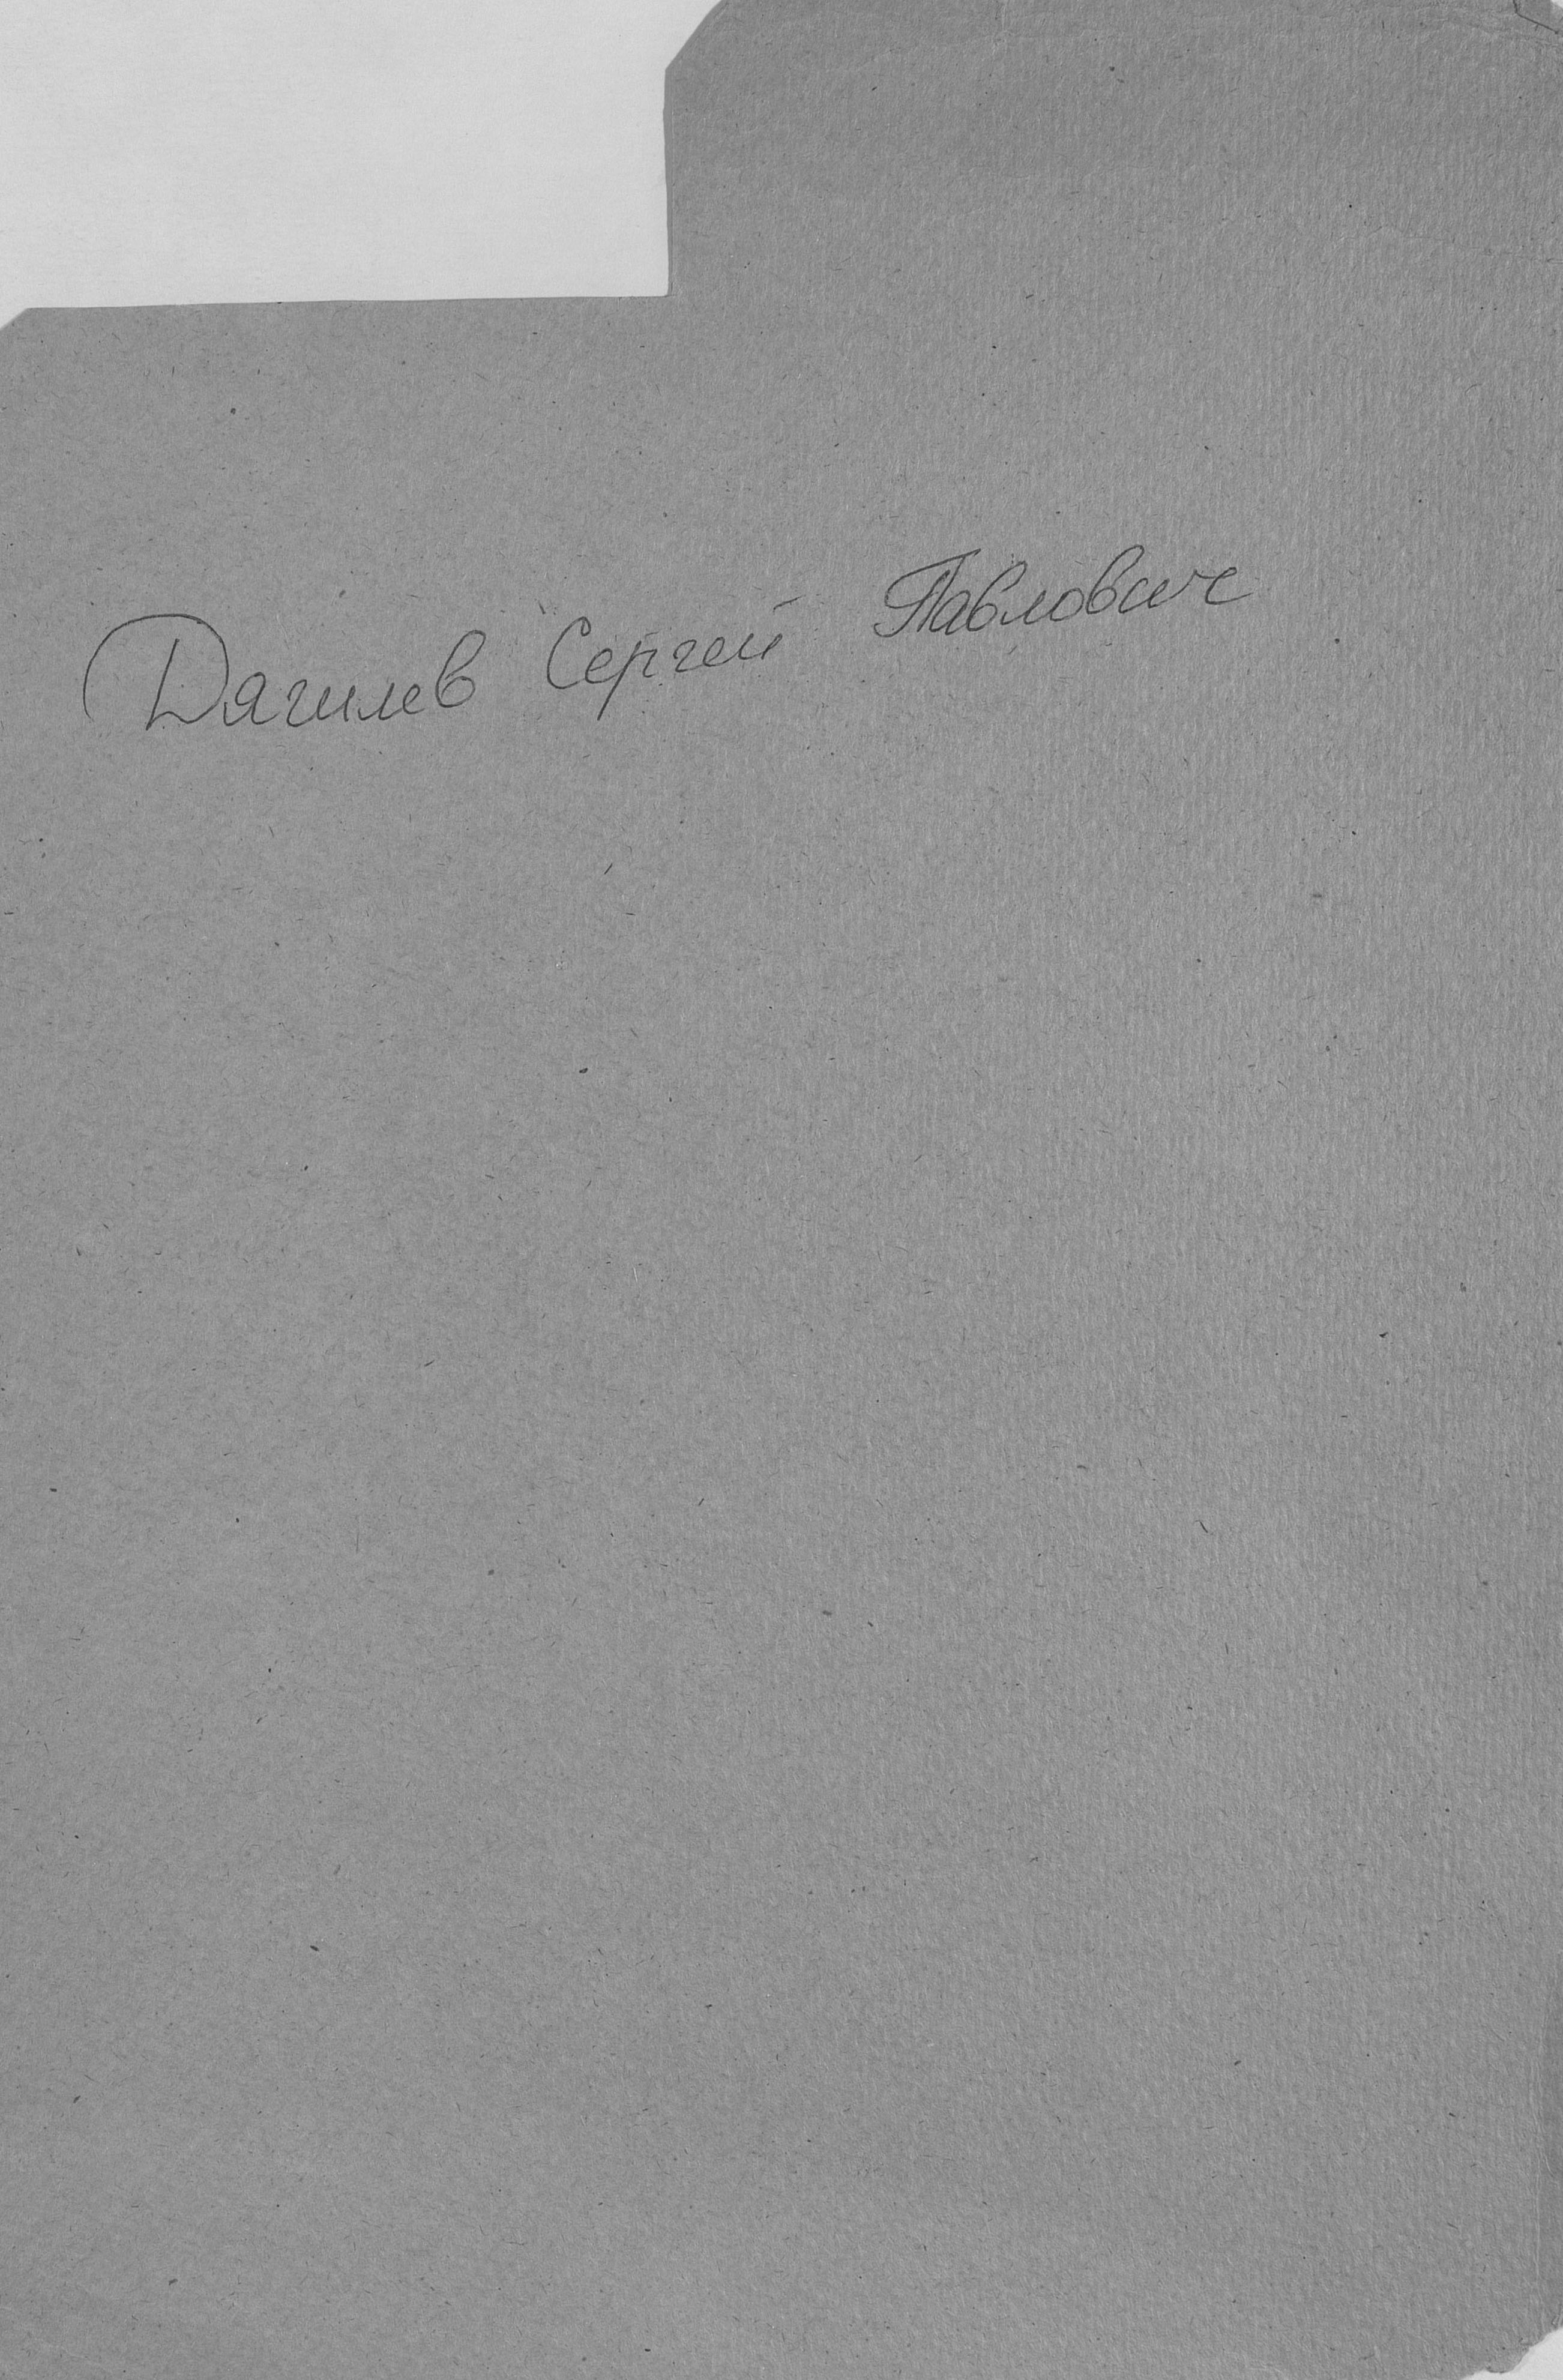 Дягилев Сергей Павлович